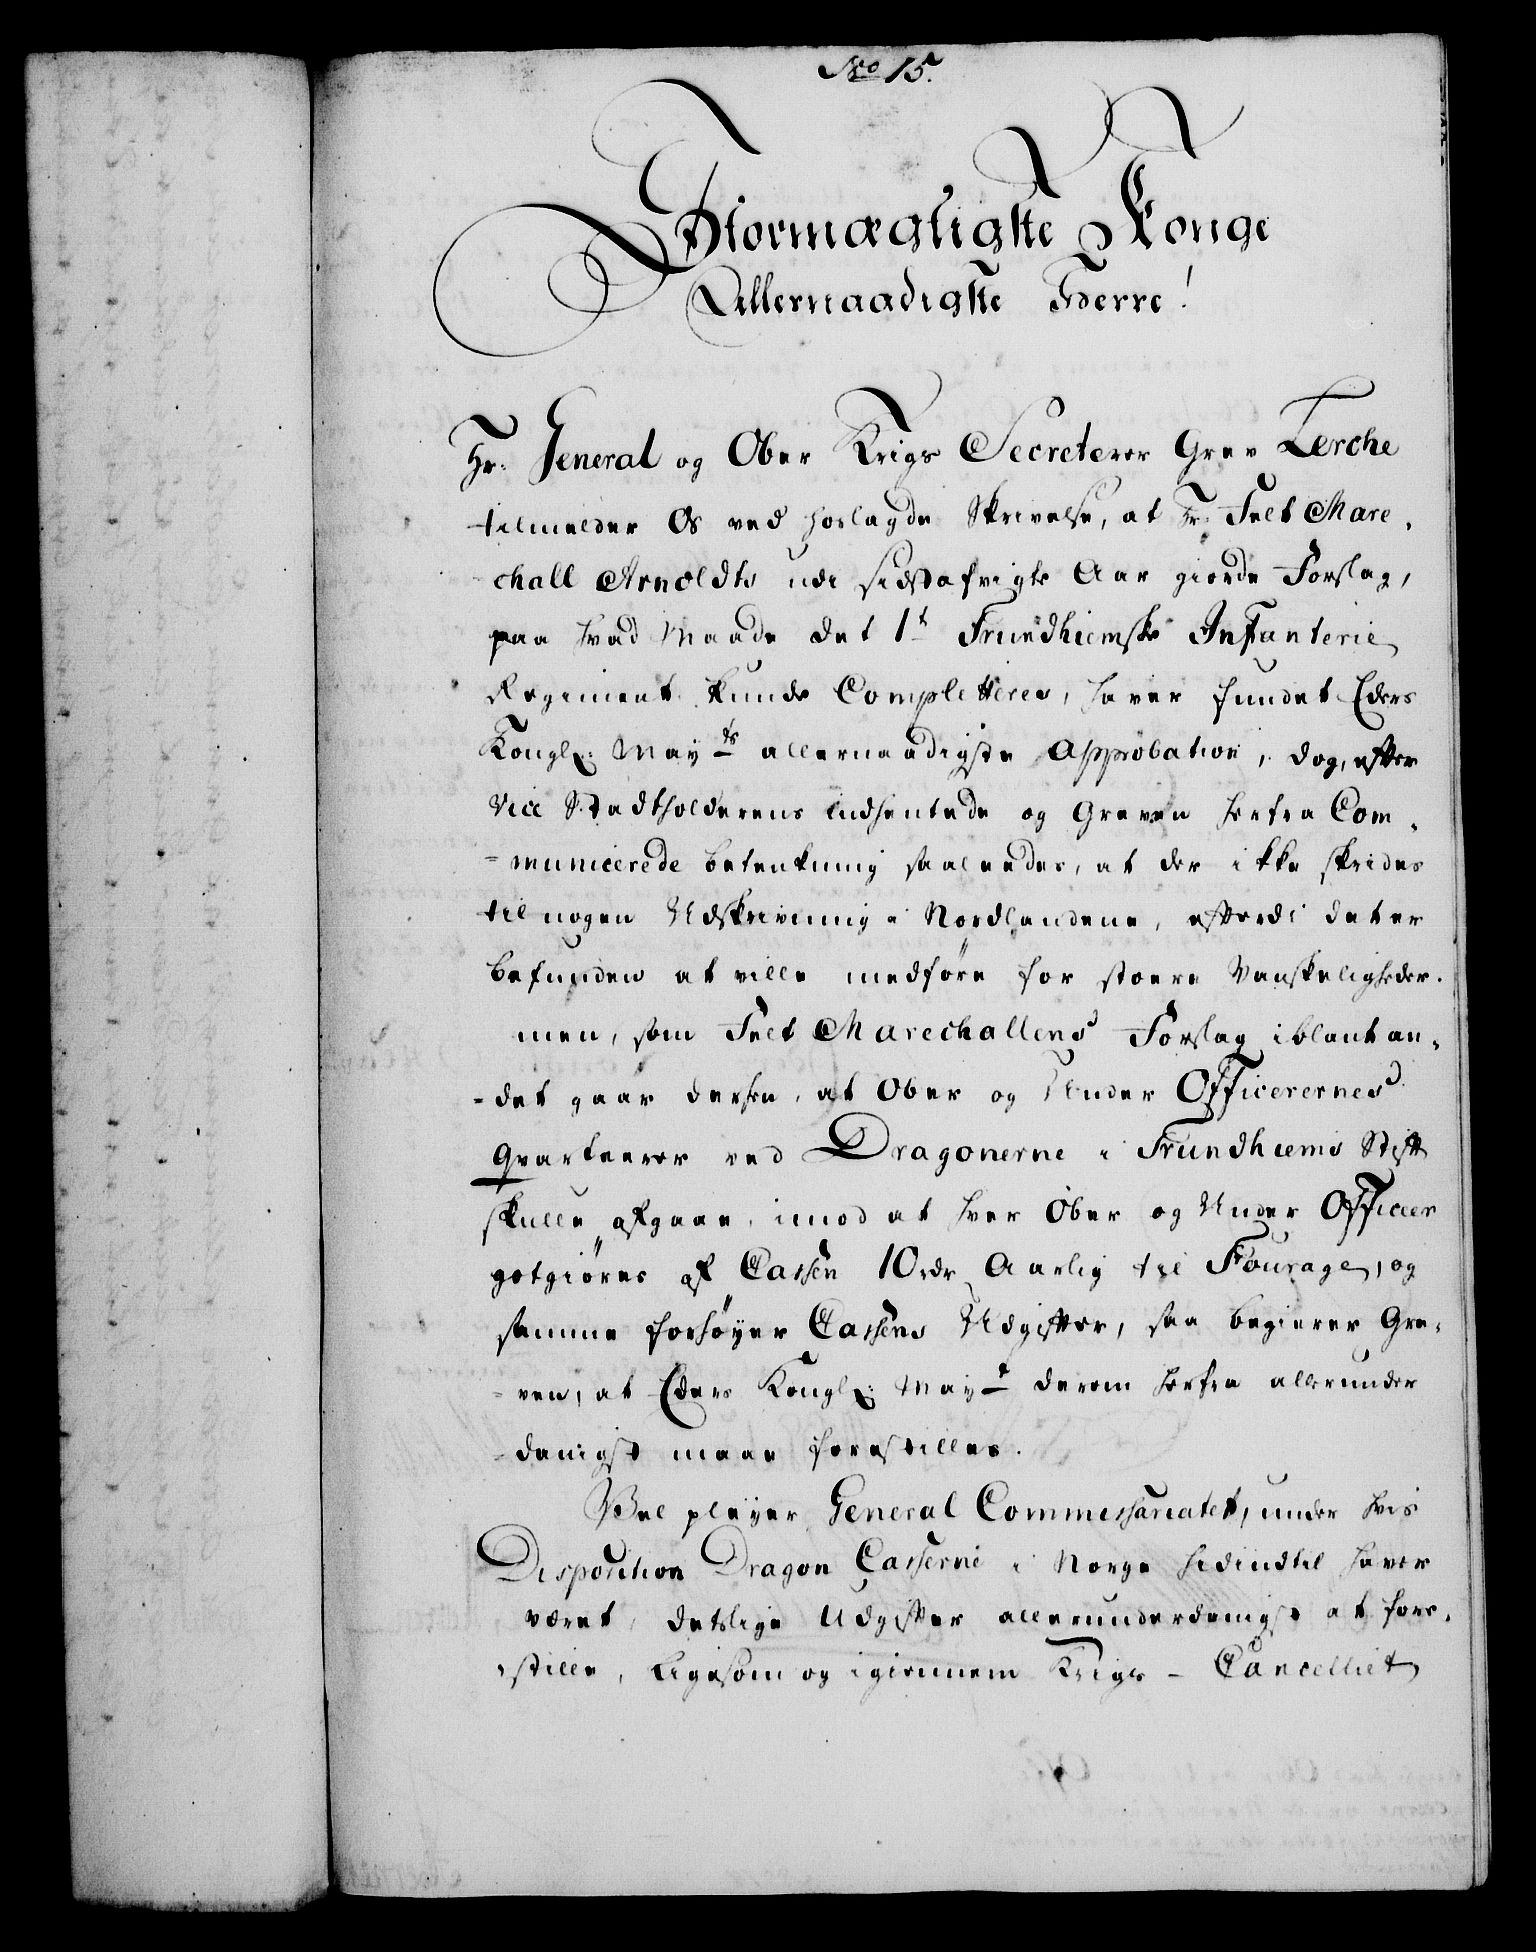 No 15.
Stormægtigste Konge
Allernaadigste Herre!
Hr: General og Ober Krigs Secreterer Grev Lerche
tilmelder Os ved hoslagde Skrivelse, at Hr: Felt Mare,
chall Arnoldts udi sidstafvigte Aar giorde Forslag,
paa hvad Maade det 1t Trundhiemske Infanterie
Regiment kunde Completteres, haver fundet Eders
Kongl: Mayts allernaadigste Approbation, dog, efter
Vice Stadtholderens indhentede og Greven herfra Com,
=municerede betenkning saaleedes, at der ikke skrides
til nogen Udskrivning i Nordlandene, efterdi det er
befunden at ville medføre for stoere Vanskeligheder.
men, som Felt Marechallens Forslag iblant an,
=det gaar derhen, at Ober og Under Officerernes
Qvarteerer ved Dragonerne i Trundhiems Stift
skulle afgaae, imod at hver Ober og Under Officier
gotgiøres af Cassen 10 rdr Aarlig til Fourage, og
samme forhøyer Cassens Udgifter, saa begierer Gre,
=ven, at Eders Kongl: Mayt derom herfra allerunder
=danigst maae forestilles.
Vel pleyer General Commissariatet, under hvis
Disposition Dragon Casserne i Norge hidindtil haver
været, detslige Udgifter allerunderdanigst at fore,
,stille, ligesom og igiennem Krigs - Cancelliet